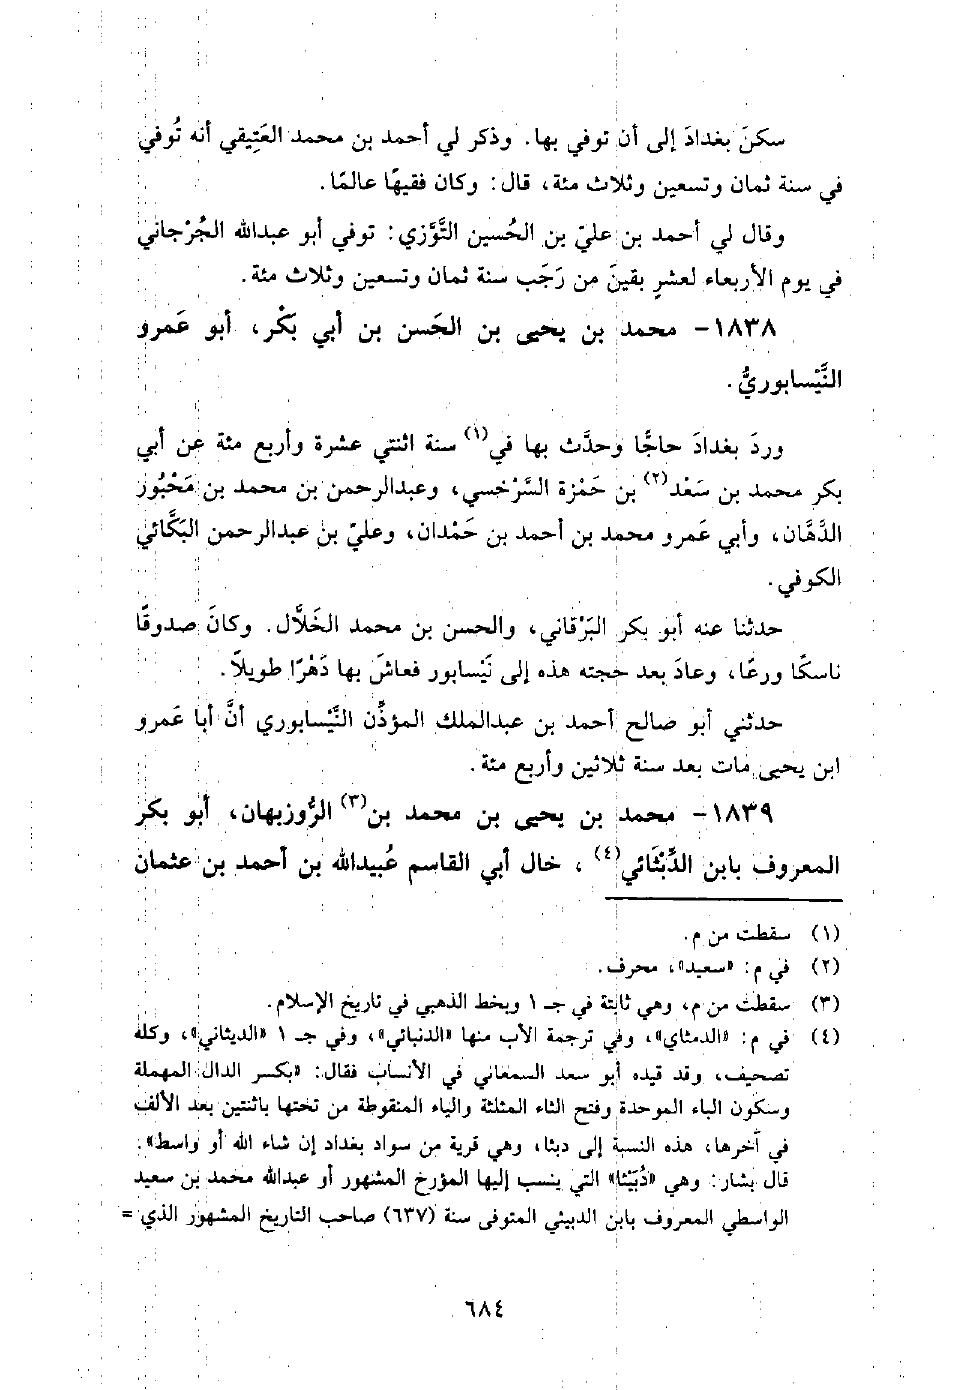 سكنَ بغدادَ إلى أن توفي بها. وذكر لي أحمد بن محمد العَتِيقي أنه تُوفي
في سنة ثمان وتسعين وثلاث مئة، قال: وكان فقيهًا عالمًا.
وقال لي أحمد بن عليّ بن الحُسين التَّوَّزي: توفي أبو عبدالله الجُرْجاني
في يوم الأربعاء لعشرٍ بقينَ من رَجَب سنة ثمان وتسعين وثلاث مئة.
١٨٣٨- محمد بن يحيى بن الحَسن بن أبي بَكْر، أبو عَمرو
النَّيْسابوريُّ.
وردَ بغدادَ حاجًّا وحدَّث بها في(١) سنة اثنتي عشرة وأربع مئة عن أبي
بكر محمد بن سَعْد(٢) بن حَمْزة السَّرْخسي، وعبدالرحمن بن محمد بن مَحْبُور
الدَّهَّان، وأبي عَمرو محمد بن أحمد بن حَمْدان، وعليّ بن عبدالرحمن البَكَّائي
الكوفي.
حدثنا عنه أبو بكر البَرْقاني، والحسن بن محمد الخَلَّال. وكانَ صدوقًا
ناسكًا ورعًا، وعادَ بعد حجته هذه إلى نَيْسابور فعاشَ بها دَهْرًا طويلاً.
حدثني أبو صالح أحمد بن عبدالملك المؤذِّن النَّيْسابوري أنَّ أبا عَمرو
ابن يحيى مات بعد سنة ثلاثين وأربع مئة.
١٨٣٩- محمد بن يحيى بن محمد بن(٣) الرُّوزبهان، أبو بكر
المعروف بابن الدِّبْثَائي(٤)، خال أبي القاسم عُبيدالله بن أحمد بن عثمان
(١) سقطت من م.
(٢) في م: «سعيد»، محرف.
(٣) سقطت من م، وهي ثابتة في جـ ١ وبخط الذهبي في تاريخ الإسلام.
(٤) في م: «الدمثاي»، وفي ترجمة الأب منها «الدنبائي»، وفي جـ ١ «الديثاني»، وكله
تصحيف، وقد قيده أبو سعد السمعاني في الأنساب فقال: «بكسر الدال المهملة
وسكون الباء الموحدة وفتح الثاء المثلثة والياء المنقوطة من تحتها باثنتين بعد الألف
في آخرها، هذه النسبة إلى دبثا، وهي قرية من سواد بغداد إن شاء الله أو واسط».
قال بشار: وهي «دُبَيْثا» التي ينسب إليها المؤرخ المشهور أو عبدالله محمد بن سعيد
الواسطي المعروف بابن الدبيثي المتوفى سنة (٦٣٧) صاحب التاريخ المشهور الذي =
٦٨٤